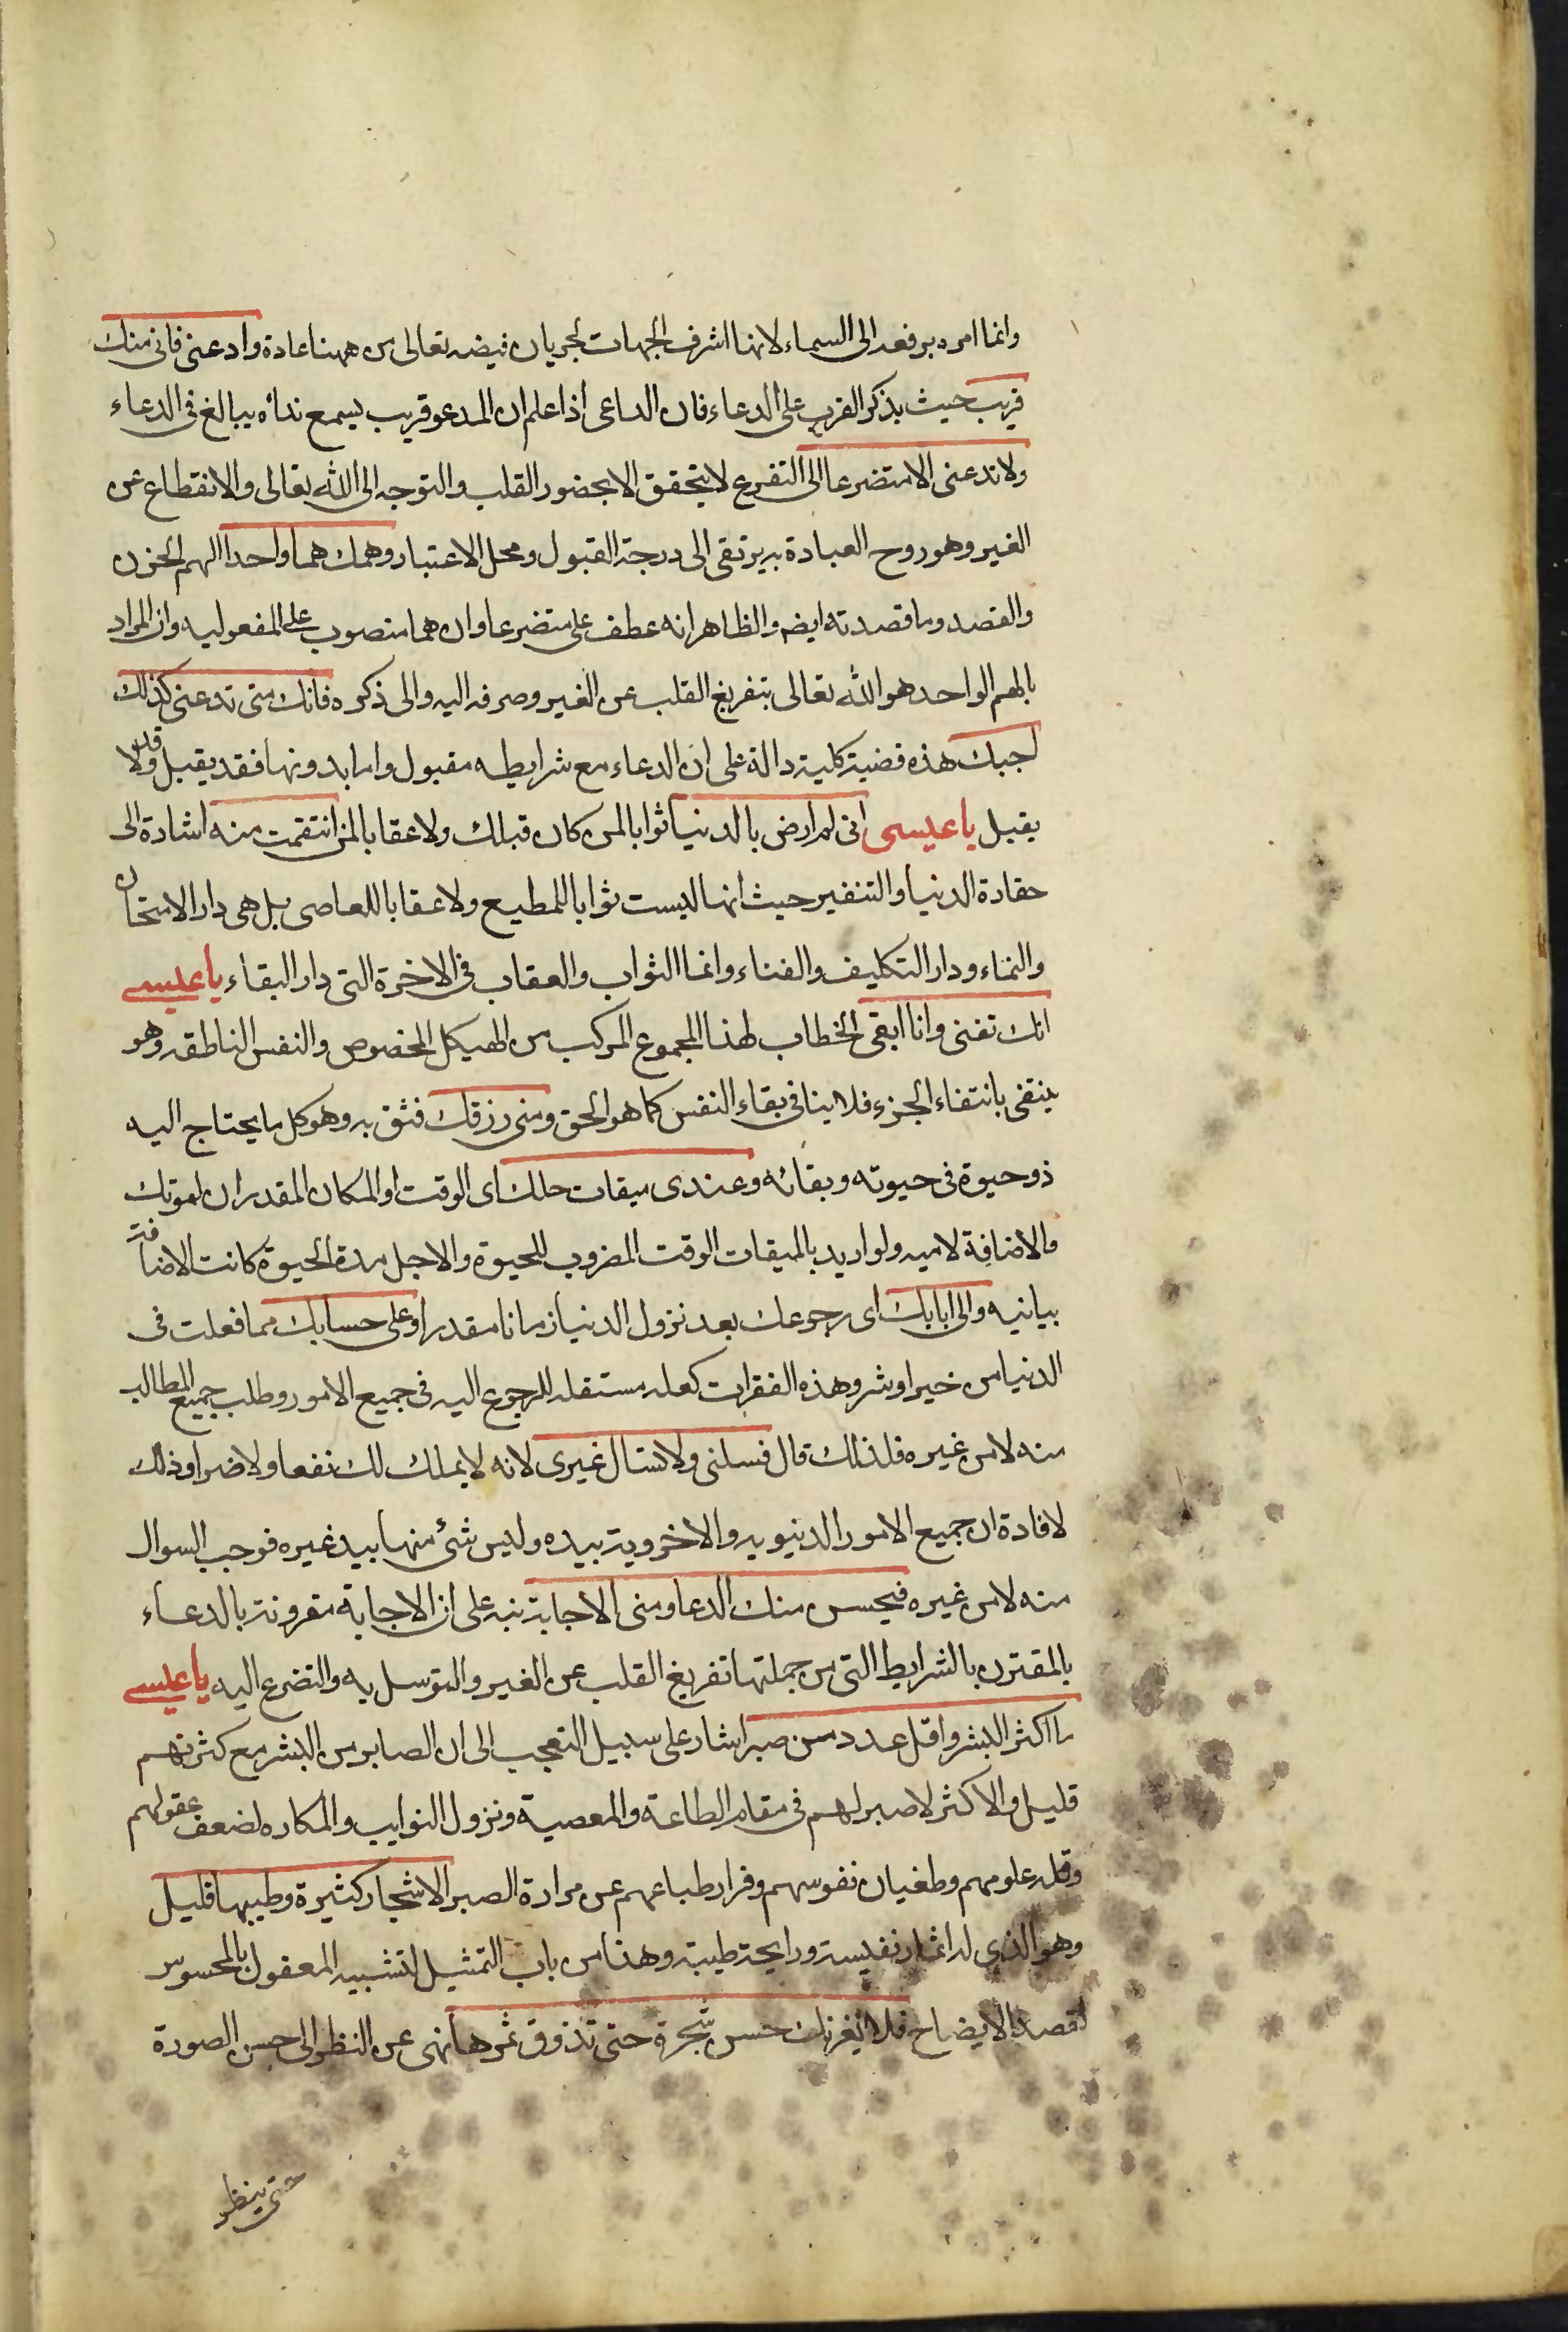 وانما امره برفعه الى السماء لانها اشرف الجهات لجريان فيضه تعالى من ههنا عادة وادعنى فانى منك
قريب حيث بذكر القرب على الدعاء فان الداعى اذا علم ان المدعو قريب يسمع ندائه يبالغ فى الدعاء
ولا تدعنى الا متضرعا الى التفرع لا يتحقق الا بحضور القلب والتوجه الى الله تعالى والانقطاع عن
الغير وهو روح العبادة به يرتقى الى درجة القبول ومحل الاعتبار وهمك هما واحدا الهم الحزن
والقصد وما قصدته ايضا والظاهر انه عطف على متضرعا وان هما منصوب على المفعوليه وان المراد
بالهم الواحد هو الله تعالى بتفريغ القلب عن الغير وصرفه اليه والى ذكره فانك متى تدعنى كذلك
اجبك هذه قضية كلية دالة على ان الدعاء مع شرايطه مقبول واما بدونها فقد يقبل وقد لا
يقبل يا عيسى انى لم ارض بالدنيا ثوابا لمن كان قبلك ولا عقابا لمن انتقمت منه اشارة الى
حقارة الدنيا والتنفير حيث انها ليست ثوابا للمطيع ولا عقابا للعاصى بل هى دار الامتحان
والنماء ودار التكليف والفناء وانما الثواب والعقاب فى الاخرة التى دار البقاء يا عيسى
انك تفنى وانا ابقى الخطاب لهذا المجموع المركب من الهيكل المخصوص والنفس الناطقه وهو
ينتفى بانتفاء الجزء فلا ينافى بقاء النفس كما هو الحق ومنى رزقك فثق به وهو كل ما يحتاج اليه
ذو حيوة فى حيوته وبقائه وعندى ميقات حلك اى الوقت او المكان المقدران لموتك
والاضافة لاميه ولو اريد بالميقات الوقت المضروب للحيوة والاجل مدة الحيوة كانت الاضافة
بيانيه والى ايابك اى رجوعك بعد نزول الدنيا زمانا مقدرا وعلى حسابك مما فعلت فى
الدنيا من خير او شر وهذه الفقرات كعلة مستقله للرجوع اليه فى جميع الامور وطلب جميع المطالب
منه لا من غيره فلذلك قال فسلنى ولا تسال غيرى لانه لا يملك لك نفعا ولا ضرا وذلك
لافادة ان جميع الامور الدنيويه والاخروية بيده وليس شئ منها بيد غيره فوجب السوال
منه لا من غيره فيحسن منك الدعا ومنى الاجابة نبه على ان الاجابة مقرونة بالدعاء
بالمقترن بالشرايط التى من جملتها تفريغ القلب عن الغير والتوسل به والتضرع اليه يا عيسى
ما اكثر البشر واقل عدد من صبر اشار على سبيل التعجب الى ان الصابر من البشر مع كثرتهم
قليل والاكثر لا صبر لهم فى مقام الطاعة والمعصية ونزول النوايب والمكاره لضعف عقولهم
وقله علومهم وطغيان نفوسهم وفرار طباعهم عن مرارة الصبر الاشجار كثيرة وطيبها قليل
وهو الذى له اثمار نفيسة ورايحة طيبة وهذا من باب التمثيل لتشبيه المعقول بالمحسوس
لقصد الايضاح فلا يغرنك حسن شجرة حتى تذوق ثمرها نهى عن النظر الى حسن الصورة
حتى ينظر